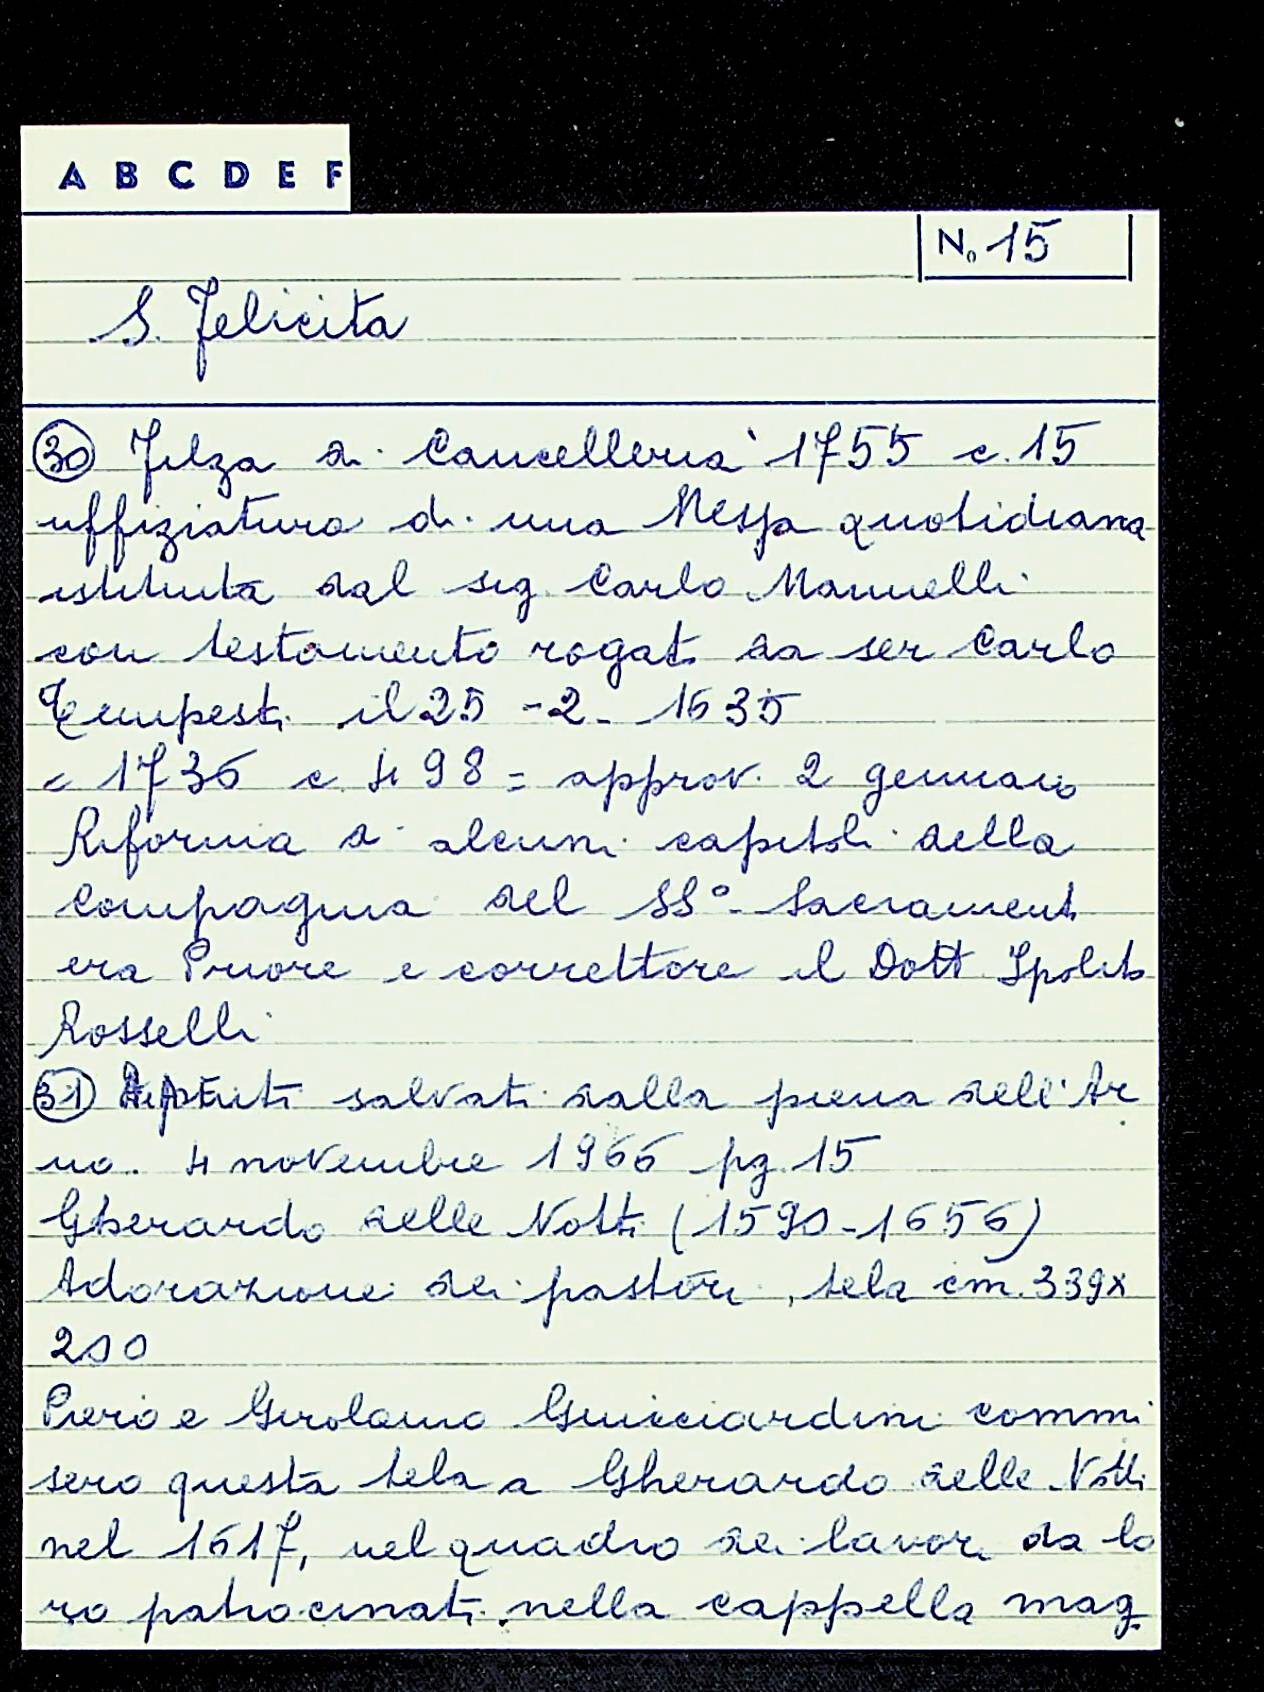 A B C D E F
No 15
S. Felicita
30 Filza di Cancelleria 1755 c. 15
uffiziatura di una Messa quotidiana
istituita dal sig. Carlo Mannelli
con testamento rogato da ser Carlo
Tempesti il 25 - 2 - 1635
c 1736 c. 498 = approv. 2 gennaio
Riforma di alcuni capitoli della
Compagnia del SS° Sacramento
era Priore e correttore il Dott Ipolito
Rosselli
31 Dipinti salvati dalla piena dell'Ar
no. 4 novembre 1966 pg. 15
Gherardo delle Notti (1590-1656)
Adorazione dei pastori, tela cm. 339x
200
Piero e Girolamo Guicciardini commi
sero questa tela a Gherardo delle Notti
nel 1617, nel quadro dei lavori da lo
ro patrocinati nella cappella mag